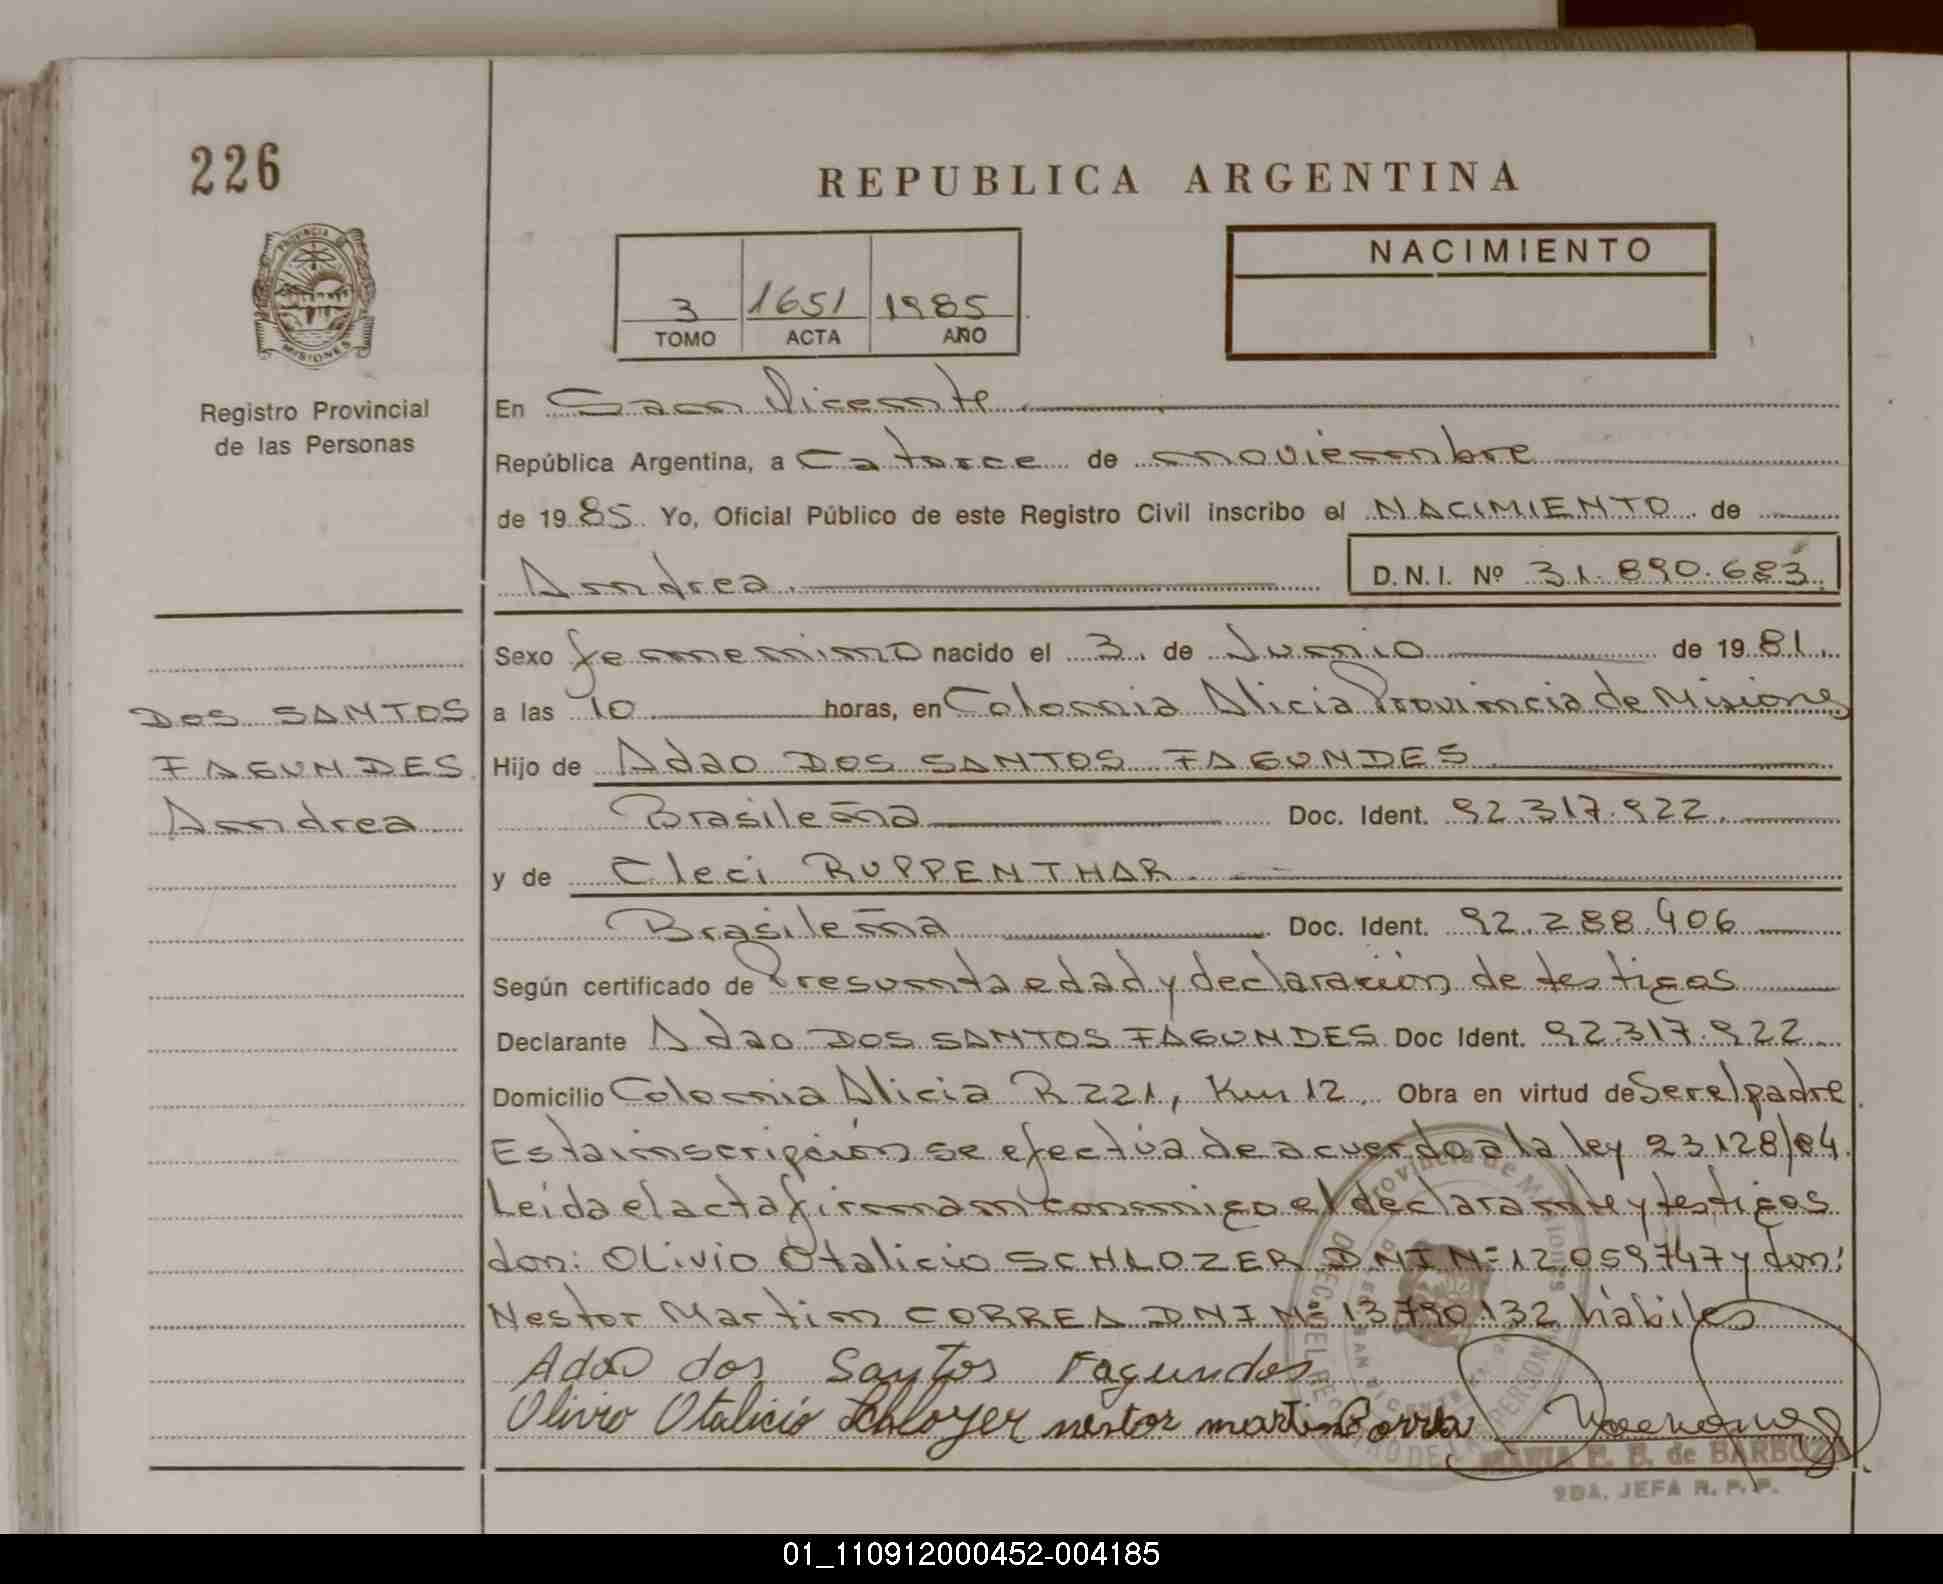 226
REPUBLICA ARGENTINA
NACIMIENTO
3 1651 1985
TOMO ACTA AÑO
PROVINCIA DE
MISIONES
Registro Provincial
de las Personas
En San Vicente
República Argentina, a Catorce de noviembre
de 1985 Yo, Oficial Público de este Registro Civil inscribo el NACIMIENTO de
Andrea D.N.I. Nº 31.890.683
Sexo femenino nacido el 3 de Junio de 1981
DOS SANTOS
FAGUNDES
Andrea
a las 10 horas, en Colonia Alicia Provincia de Misiones
Hijo de Adao DOS SANTOS FAGUNDES
Brasileña Doc. Ident. 92.317.922
y de Cleci RUPPENTHAR
Brasileña Doc. Ident. 92.288.406
Según certificado de Presunta edad y declaración de testigos
Declarante Adao DOS SANTOS FAGUNDES Doc Ident. 92.317.922
Domicilio Colonia Alicia R 221, Km 12. Obra en virtud de Ser el padre
Esta inscripción se efectúa de acuerdo a la ley 23.128/84.
Leída el acta firman conmigo el declarante y testigos
don: Olivio Otalicio SCHLOZER DNI Nº 12.059747 y don:
Nestor Martin CORREA DNI Nº 13.790.132 hábiles
Adao dos Santos Fagundes
Olivio Otalicio Schlozer nestor martin Correa
MARIA E. B. de BARBOZA
2DA. JEFA R. P. P.
01_110912000452-004185